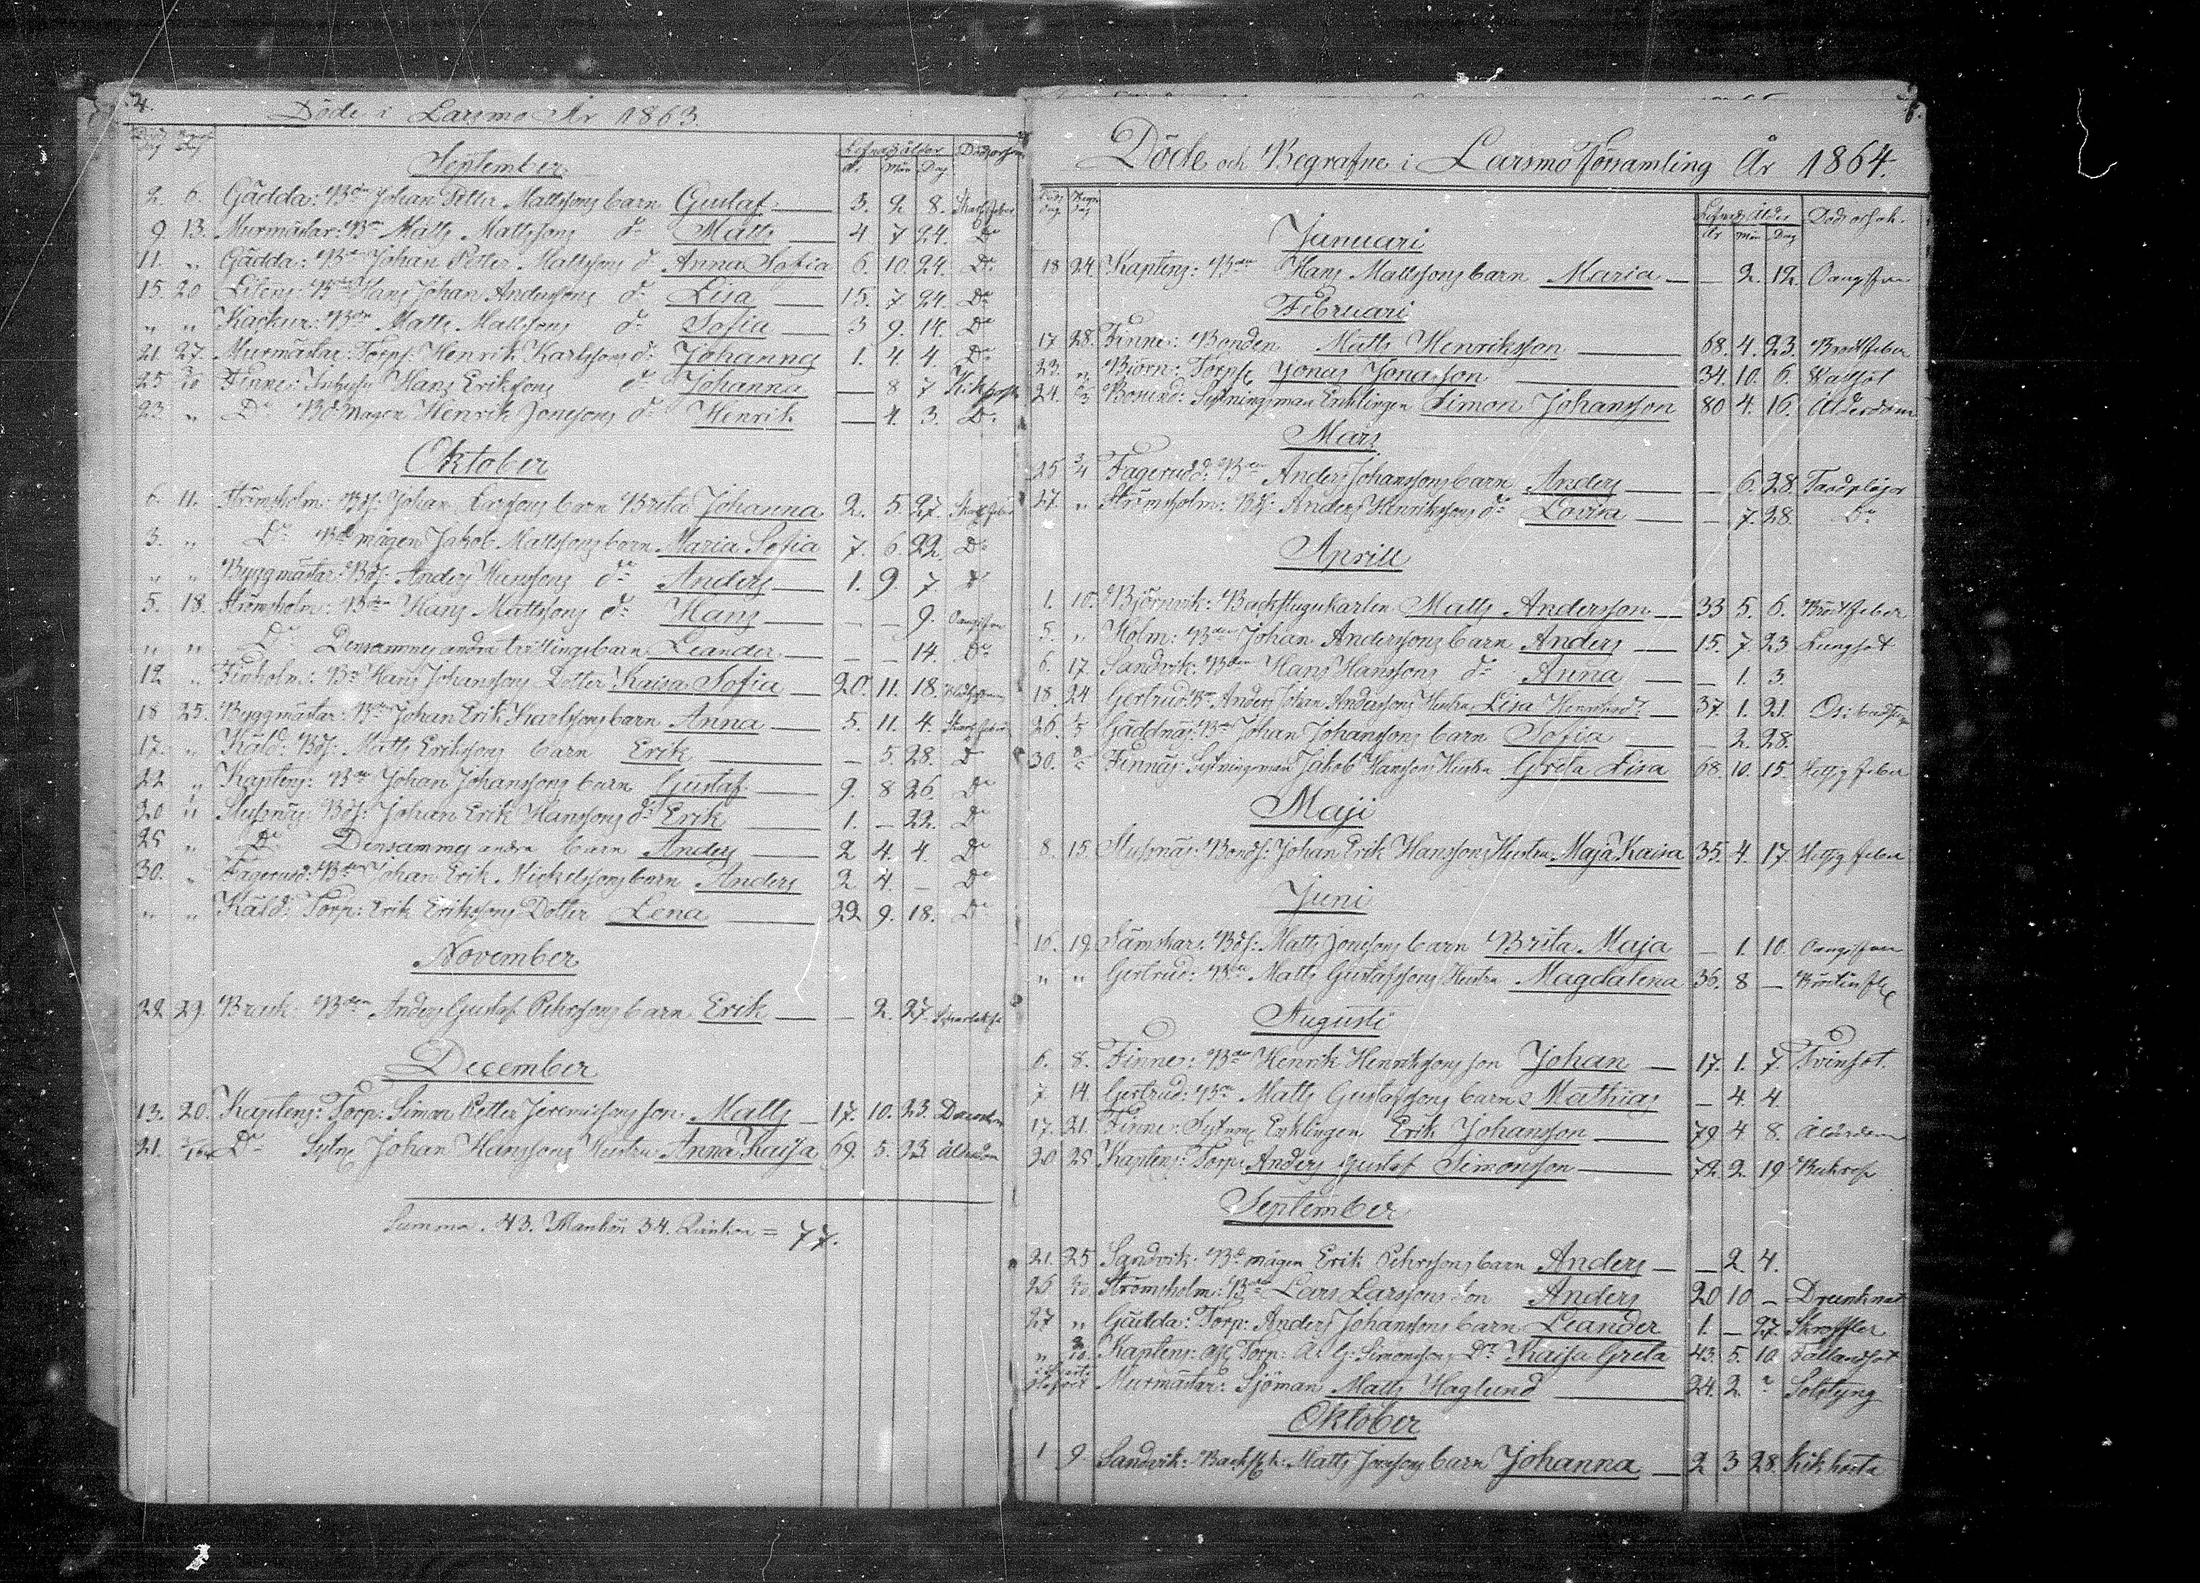 Döde i Larsmo År 1863.
Lefnadsålder
år mån Dag
September
2. 6. Gädda: Bdn Johan Petter Mattssons barn Gustaf 3. 2 8.
9 13. Murmästar: Bdn Matts Mattssons do Matts 4 7 24. Do
11. " Gädda: Bdn Johan Petter Mattssons do Anna Sofia 6. 10. 24. Do
15. 20 Hans Johan Anderssons do Lisa 15. 7 24. Do
" " Matts Mattssons do Sofia 3 9. 14. Do
21 27. Murmästar: Torp: Henrik Karlssons do Johannes 1. 4 4. Do
25 Finne: Hans Erikssons do Johanna — 8 7
23. " Do Bdmågen Henrik Jonssons do Henrik — 4. 3. Do
Oktober
6. 11. Strömsholm: Bds: Johan Larssons barn Brita Johanna 2. 5. 27.
3. " Do Bdmågen Jakob Mattssons barn Maria Sofia 7. 6 22. Do
" " Byggmästar: Bds: Anders Hanssons do Anders 1. 9. 7 Do
5. 18. Strömsholm: Bdn Hans Mattssons do Hans — — 9.
" " Do Densammes andra barn Leander — — 14. Do
12 " Hans Johanssons Dotter Kaisa Sofia 20. 11. 18.
18 25. Byggmästar: Bdn Johan Erik Karlssons barn Anna 5. 11. 4.
17. " Käld: Bds: Matts Erikssons barn Erik — 5. 28. Do
22 " Kaptens: Bdn Johan Johanssons barn Gustaf 9. 8 26. Do
20 " Bds: Johan Erik Hanssons do Erik 1. — 22. Do
25 " Do Densammes andra barn Anders 2 4. 4. Do
30. " Fagerudd: Bdn Johan Erik Mickelssons barn Anders 2 4. — Do
" " Käld: Torp: Erik Erikssons Dotter Lena 22 9. 18. Do
November
22. 29. Anders Gustaf Pehrssons barn Erik — 2. 27.
December
13. 20. Kaptens: Torp: Simon Petter Jeremiassons son Matts 17. 10. 23.
21. Do Johan Hanssons Hustru Anna Kaisa 69. 5. 23 Ålderdom
Summa. 43. Mankön 34. Qvinkön = 77.
Döde och Begrafne i Larsmo Församling År 1864.
Lefnadsålder Dödsorsak.
år Mån Dag
Januari
18 24 Kaptens: Bdn Hans Mattssons barn Maria — 2. 12.
Februari
17 28. Finne: Bonden Matts Henriksson 68. 4. 23. Bröstfeber
23. " Björn: Torp: Jonas Jonasson 34. 10. 6.
24. Sytningsman Enklingen Simon Johansson 80 4. 16. Ålderdom
Mars
25 3/4 Fagerudd: Bdn Anders Johanssons barn Anders — 6. 28.
27. " Strömsholm: Bds: Anders Henrikssons do Lovisa — 7. 28. Do
Aprill
1. 10. Björnvik: Backstugukarlen Matts Andersson 33 5. 6. Bröstfeber
5. " Holm: Bdn Johan Anderssons barn Anders 15. 7 23 Lungsot
6. 17 Sandvik: Bdn Hans Hanssons do Anna — 1. 3.
18. 24 Gertrud: Bdn Anders Johan Anderssons Hustru Lisa 37. 1. 21.
26. 1/5 Gäddnäs: Bdn Johan Johanssons barn Sofia — 2. 28.
30. " Finnäs: Sytningsman Jakob Hanssons Hustru Greta Lisa 68. 10. 15. Hetsig feber
Maji
8. 15. Bonds: Johan Erik Hanssons Hustru Maja Kaisa 35. 4. 17. Hetsig feber
Juni
16. 19. Sämskar: Bds: Matts Jonssons barn Brita Maja — 1. 10.
" " Gertrud: Bdn Matts Gustafssons Hustru Magdalena 36. 8 —
Augusti
6. 8. Finne: Bdn Henrik Henrikssons son Johan 17. 1. 7. Tvinsot.
7 14. Gertrud: Bdn Matts Gustafssons barn Mathias — 4. 4.
17. 21. Finne: Sytnm: Enklingen Erik Johansson 79. 4 8. Ålderdom
20 25 Kaptens: Torp: Anders Gustaf Simonsson 72. 2. 19
September
21. 25 Sandvik: Bdmågen Erik Pehrssons barn Anders — 2 4.
25. Strömsholm: Bdn Lars Larssons son Anders 20 10 — Drunknat
27 " Gädda: Torp: Anders Johanssons barn Leander 1. — 27. Skroffler
" Kaptens: Torp: A: G: Simonssons Dr Kaisa Greta 43. 5. 10 Fallandsot
Murmästar: Sjöman Matts Haglund 24. 2. " Solstyng
Oktober
1 9. Sandvik: Matts Jonssons barn Johanna 2 3 28. Kikhosta